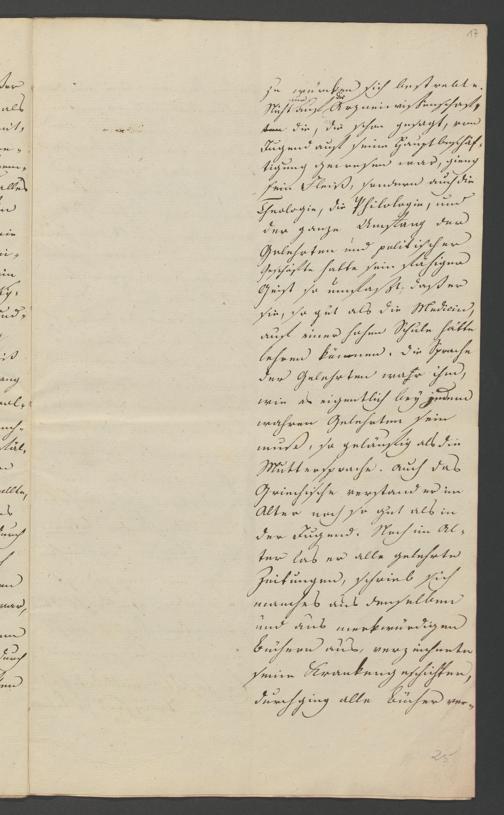 17
zu würken sich bestrebte.
Nicht auf die Arzneiwissenschaft,
die, die schon gesagt, von
Jugend auf seine Hauptbeschäf-
tigung gewesen war, gieng
sein Fleiß, sondern auch die
Theologie, die Philologie, und
der ganze Umfang der
Gelehrten und politischer
Geschäfte hatte sein fähiger
Geist so umfaßt, daß er
sie, so gut als die Medicin,
auf einer hohen Schule hätte
lehren können. Die Sprache
der Gelehrten war ihm,
wie es eigentlich bey jedem
wahren Gelehrten sein
muß, so geläufig als die
Muttersprache. Auch das
Griechische verstand er im
Alter noch so gut als in
der Jugend. Noch im Al-
ter las er alle gelehrte
Zeitungen, schrieb sich
manches aus denselben
und aus merkwürdigen
Büchern aus, verzeichnete
seine Krankengeschichten,
durchging alle Bücher ver-
25